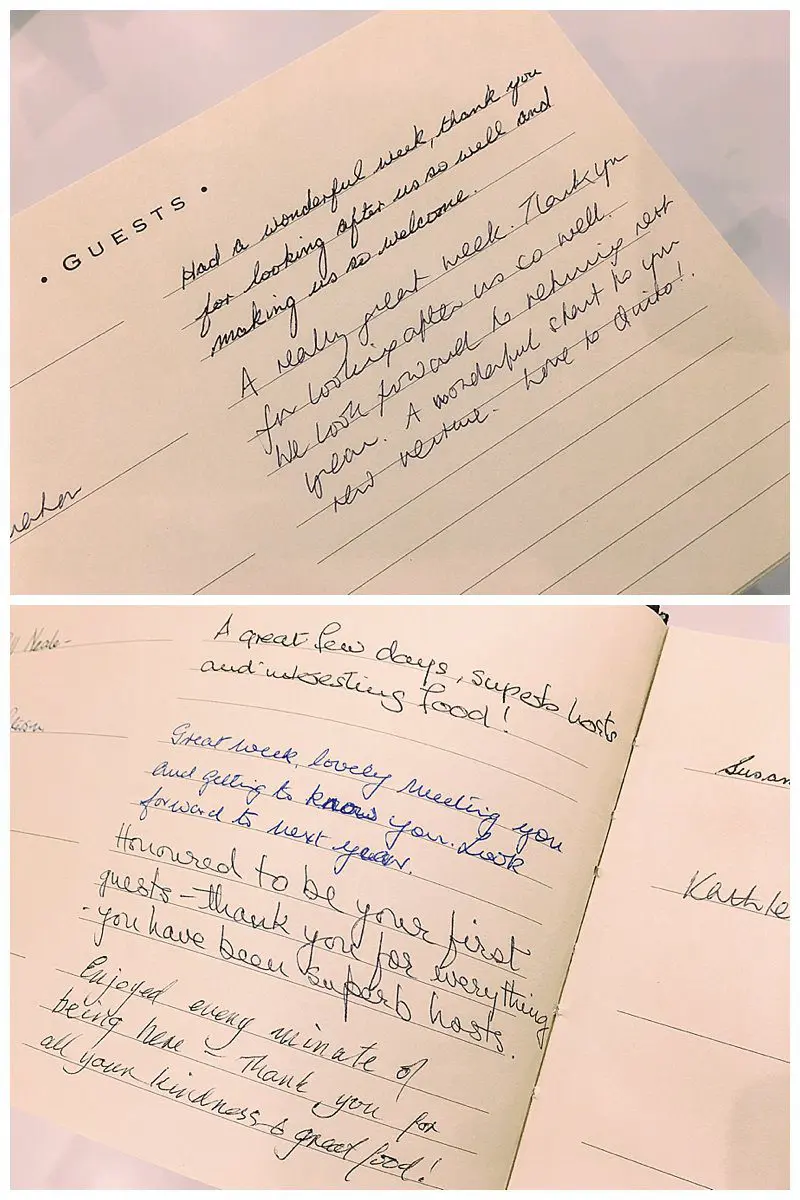 • GUESTS •
Had a wonderful week, thank you
for looking after us so well and
making us so welcome.
A really great week. Thank you
for looking after us so well.
We look forward to returning next
year. A wonderful start to your
new venture. Love to Quito!.
A great few days, superb hosts
and interesting food!
Great week, lovely meeting you
and getting to know you. Look
forward to next year.
Honoured to be your first
guests - thank you for everything
- you have been superb hosts.
Enjoyed every minute of
being here - Thank you for
all your kindness & great food!
Neale-
Susan
Kathle